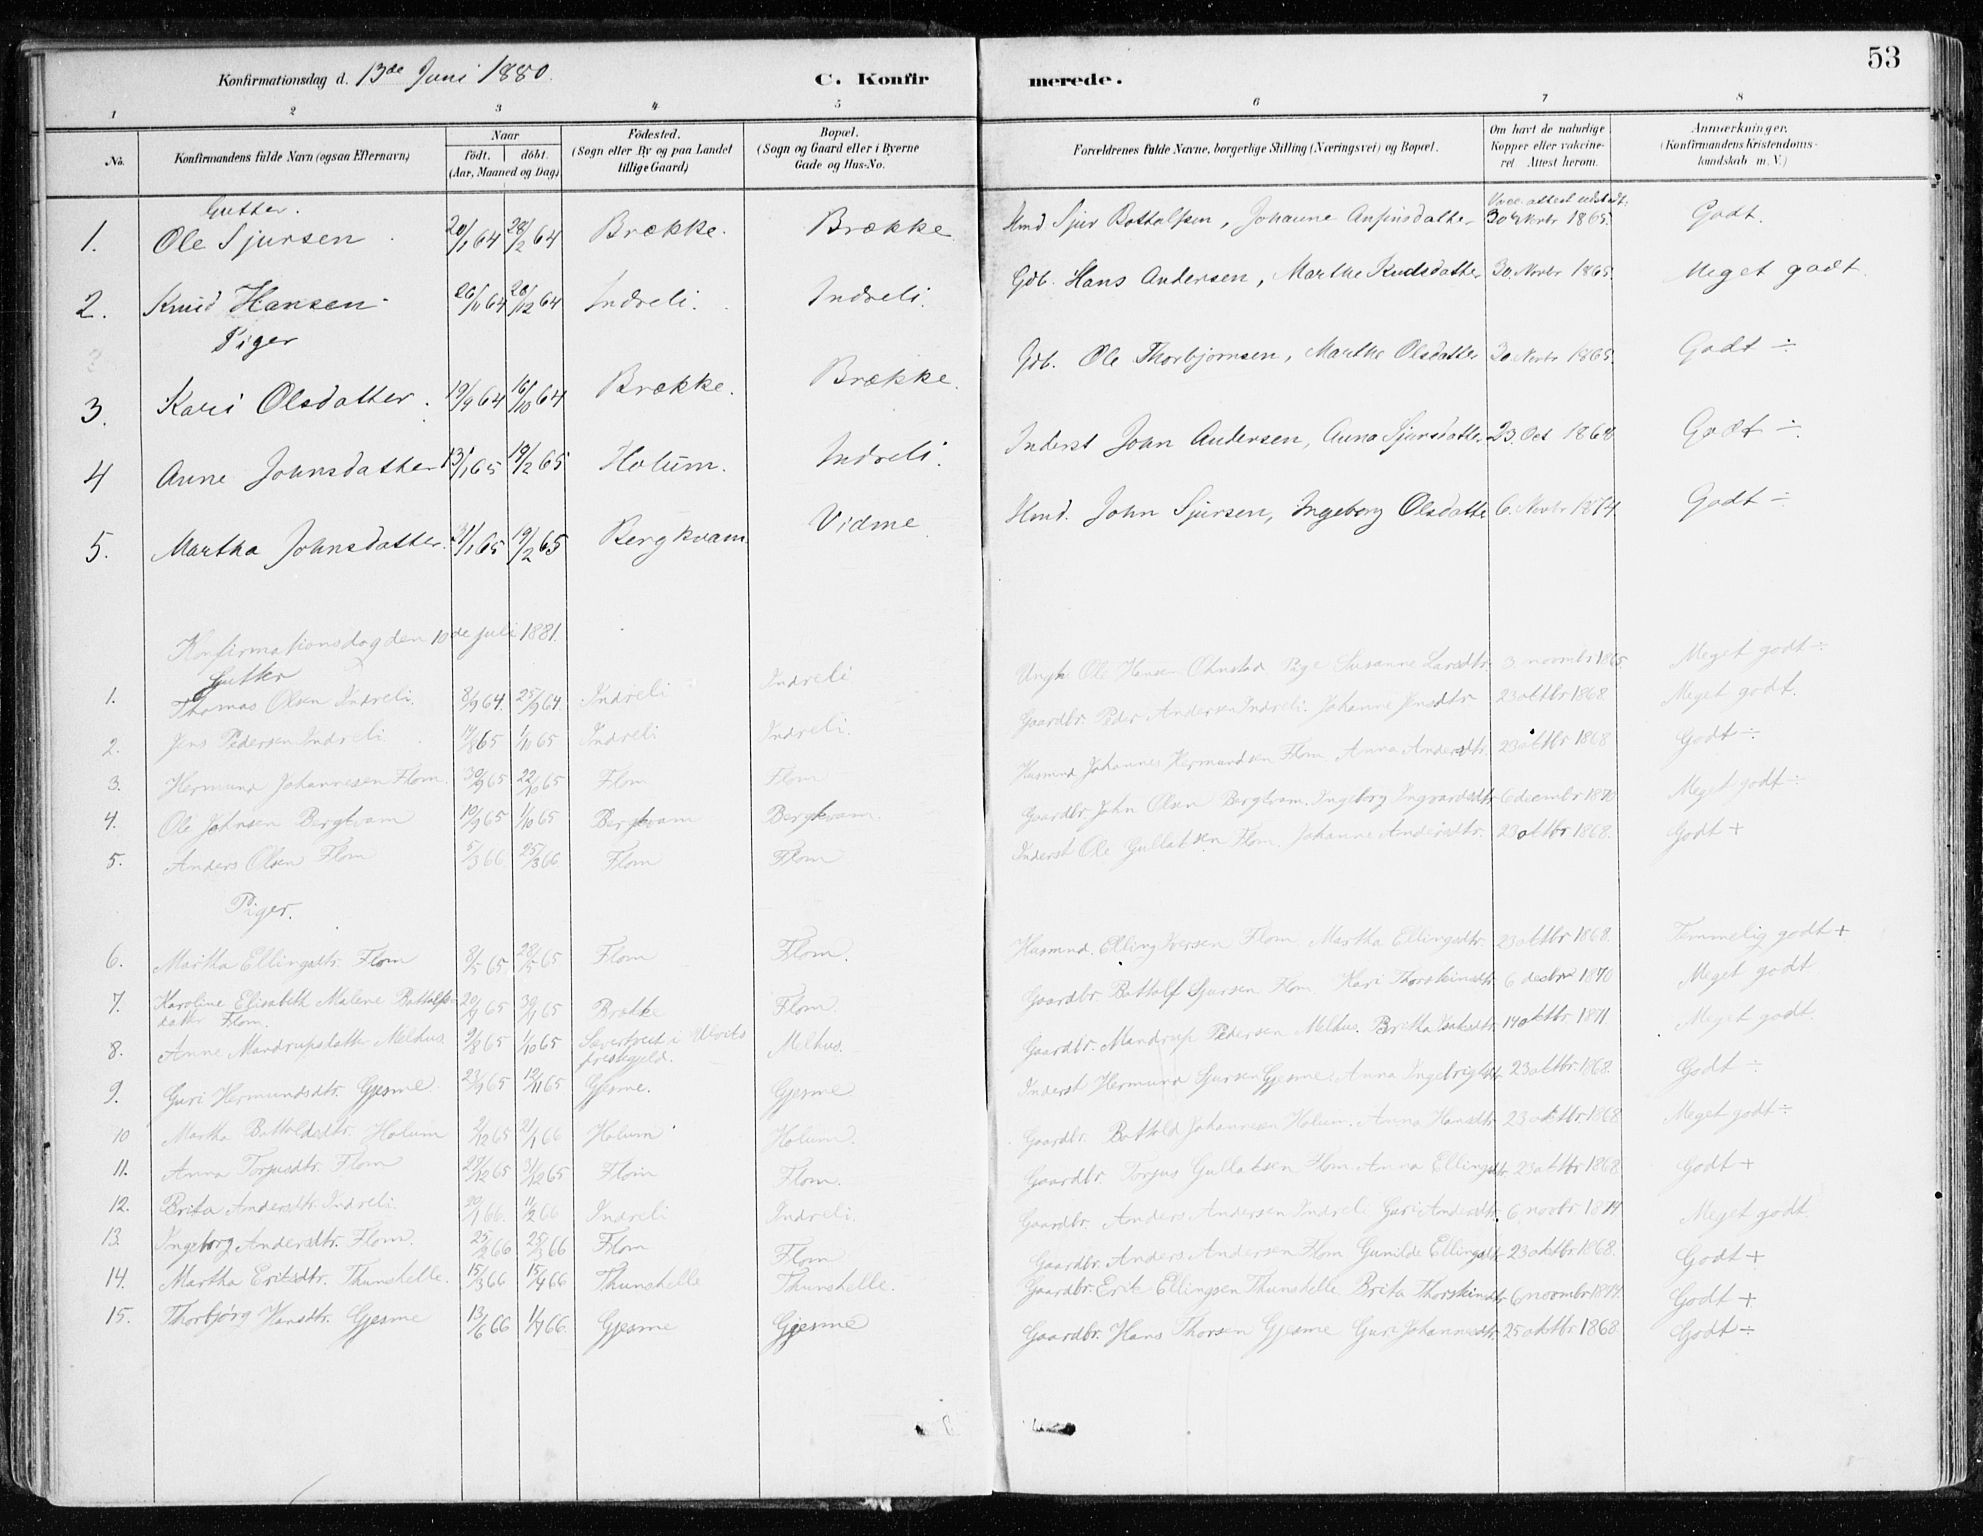 53
Konfirmationsdag d. 13de Juni 1880.
C. Konfirmerede.
1 2 3 4 5 6 7 8
No. Konfirmandens fulde Navn (ogsaa Efternavn) Naar födt. döbt. (Aar, Maaned og Dag) Födested. (Sogn eller By og paa Landet tillige Gaard) Bopæl. (Sogn og Gaard eller i Byerne Gade og Hus-No. Forældrenes fulde Navne, borgerlige Stilling (Næringsvei) og Bopæl. Om havt de naturlige Kopper eller vakcineret Attest herom. Anmærkninger. (Konfirmandens Kristendomskundskab m. V.)
Gutter.
1. Ole Sjursen 20/1 64 28/2 64 Brække. Brække Hmd Sjur Bottolfsen, Johanne Anfinsdatter Vacc. attest udstedt. 30 Novbr 1865. Godt.
2. Knud Hansen 26/11 64 26/12 64 Indreli. Indreli. Gdb. Hans Andersen, Marthe Knudsdatter 30 Novbr 1865. Meget godt.
Piger
3. Kari Olsdatter. 19/9 64 16/10 64 Brække. Brække. Gdb. Ole Thorbjørnsen, Marthe Olsdatter 30 Novbr 1865. Godt ÷
4 Anne Johnsdatter 13/1 65 19/2 65 Holum. Indreli. Inderst John Andersen, Anna Sjursdatter 23. Oct 1868 Godt ÷
5. Martha Johnsdatter. 31/1 65 19/2 65 Bergkvam Vidme Hmd. John Sjursen, Ingeborg Olsdatter 6. Novbr 1874. Godt ÷
Konfirmationsdag den 10de juli 1881.
Gutter
1. Thomas Olsen Indreli. 8/9 64. 25/9 64. Indreli Indreli Ungk. Ole Hansen Ohnstad Pige Susanne Larsdtr 3 novmbr 1865 Meget godt ÷
2. Jens Pedersen Indreli 19/8 65 1/10 65 Indreli Indreli. Gaardbr. Peder Andersen Indreli. Johanne Jensdtr 23 oktbr 1868. Meget godt.
3. Hermund Johannesen Flom. 30/9 65 22/10 65 Flom Flom Husmnd Johannes Hermundsen Flom. Anna Andersdtr. 23 oktbr 1868 Godt ÷
4. Ole Johnsen Bergkvam 10/9 65 1/10 65 Bergkvam Bergkvam. Gaardbr. John Olsen Bergkvam. Ingeborg Ingvardsdtr 6 decmbr 1870 Meget godt ÷
5. Anders Olsen Flom 5/3 66 25/3 66 Flom Flom Inderst Ole Gullaksen Flom. Johanne Andersdtr. 23 oktbr 1868. Godt +
Piger.
6. Martha Ellingsdtr. Flom 8/5 65 28/5 65 Flom Flom. Husmnd. Elling Iversen Flom. Martha Ellingsdtr. 23 oktbr 1868. Temmelig godt +
7. Karoline Elisabeth Malene Bottolfsdatter Flom. Brække Flom. Gaardbr. Bottolf Sjursen Flom. Kari Thorsteinsdtr 6 decbr 1870 Meget godt
8. Anne Mandrupsdatter Melhus. 9/8 65 1/10 65 Sævertveit i Ulviks prestegjeld. Melhus. Gaardbr. Mandrup Pedersen Melhus. Britha Isaksdtr. 14 oktbr 1871 Meget godt.
9. Guri Hermundsdtr. Gjesme. 23/9 65 12/11 65 Gjesme. Gjesme Inderst Hermund Sjursen Gjesme. Anna Ingebrigtsdtr 23 oktbr. 1868. Godt ÷
10 Martha Bottoldsdtr. Holum 2/12 65 21/1 66 Holum Holum. Gaardbr. Bottold Johannesen Holum. Anna Hansdtr 23 oktbr 1868 Meget godt ÷
11. Anna Torjusdtr. Flom 31/12 65 Flom Flom. Gaardbr. Torjus Gullaksen Flom. Anna Ellingsdtr. 23 oktbr 1868 Godt +
12. Brita Andersdtr. Indreli. 20/1 66. 11/2 66 Indreli Indreli. Gaardbr. Anders Andersen Indreli Guri Andersdtr 6 novbr 1874 Meget godt.
13. Ingeborg Andersdtr. Flom. 25/2 66 25/3 66 Flom Flom Gaardbr. Anders Andersen Flom Gunilde Ellingsdtr 23 oktbr 1868. Godt +
14. Martha Eriksdtr. Thunshelle. 15/3 66 15/4 66 Thunshelle Thunshelle. Gaardbr. Erik Ellingsen Thunshelle Brita Thorsteinsdtr 6 novmbr 1874. Godt +
15. Thorbjørg Hansdtr. Gjesme 13/6 66 1/7 66. Gjesme Gjesme Gaardbr. Hans Thorsen Gjesme Guri Johannesdtr. 25 oktbr 1868 Godt ÷